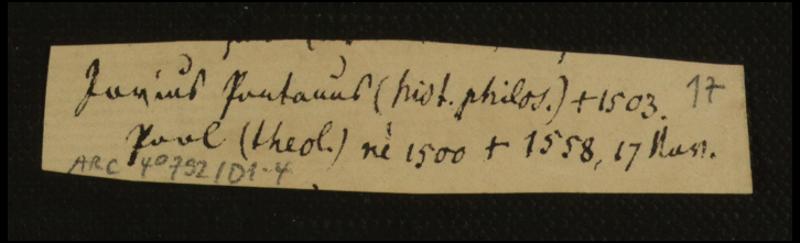 Jovius Pontanus (hist. philos.) + 1503. 17
Paul (theol.) né 1500 + 1558, 17 Nov.
ARC 40792/D1-4